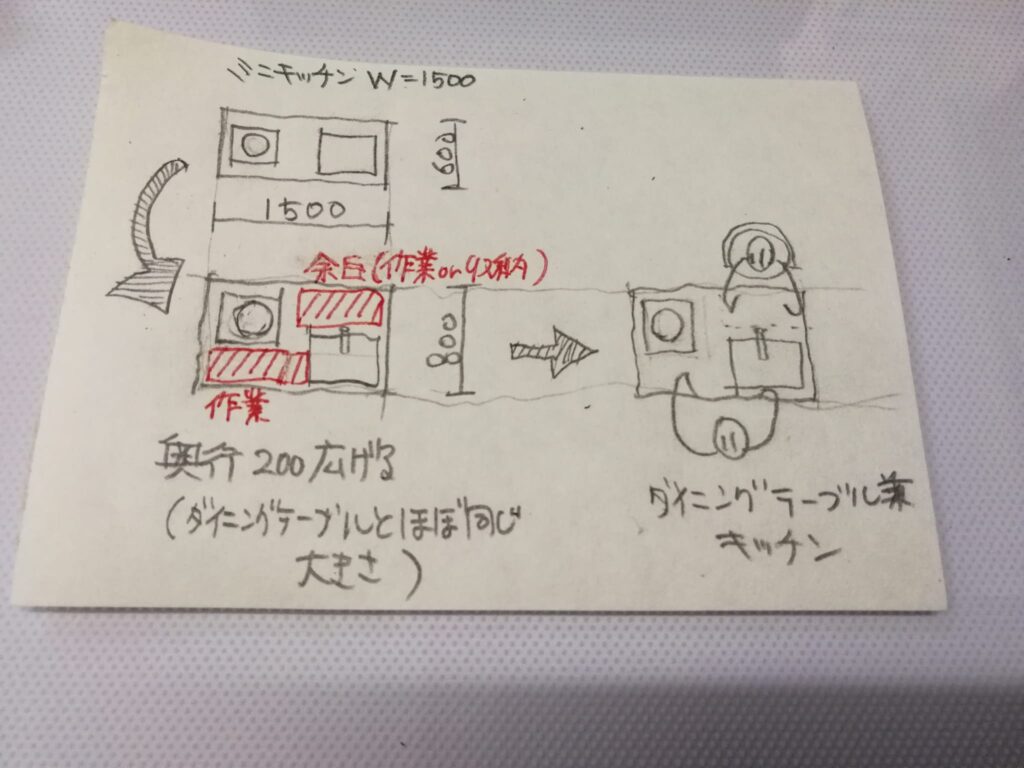 ミニキッチン W=1500
600
1500
余白(作業or収納)
800
作業
奥行 200 広げる
(ダイニングテーブルとほぼ同じ
大きさ)
ダイニングテーブル兼
キッチン